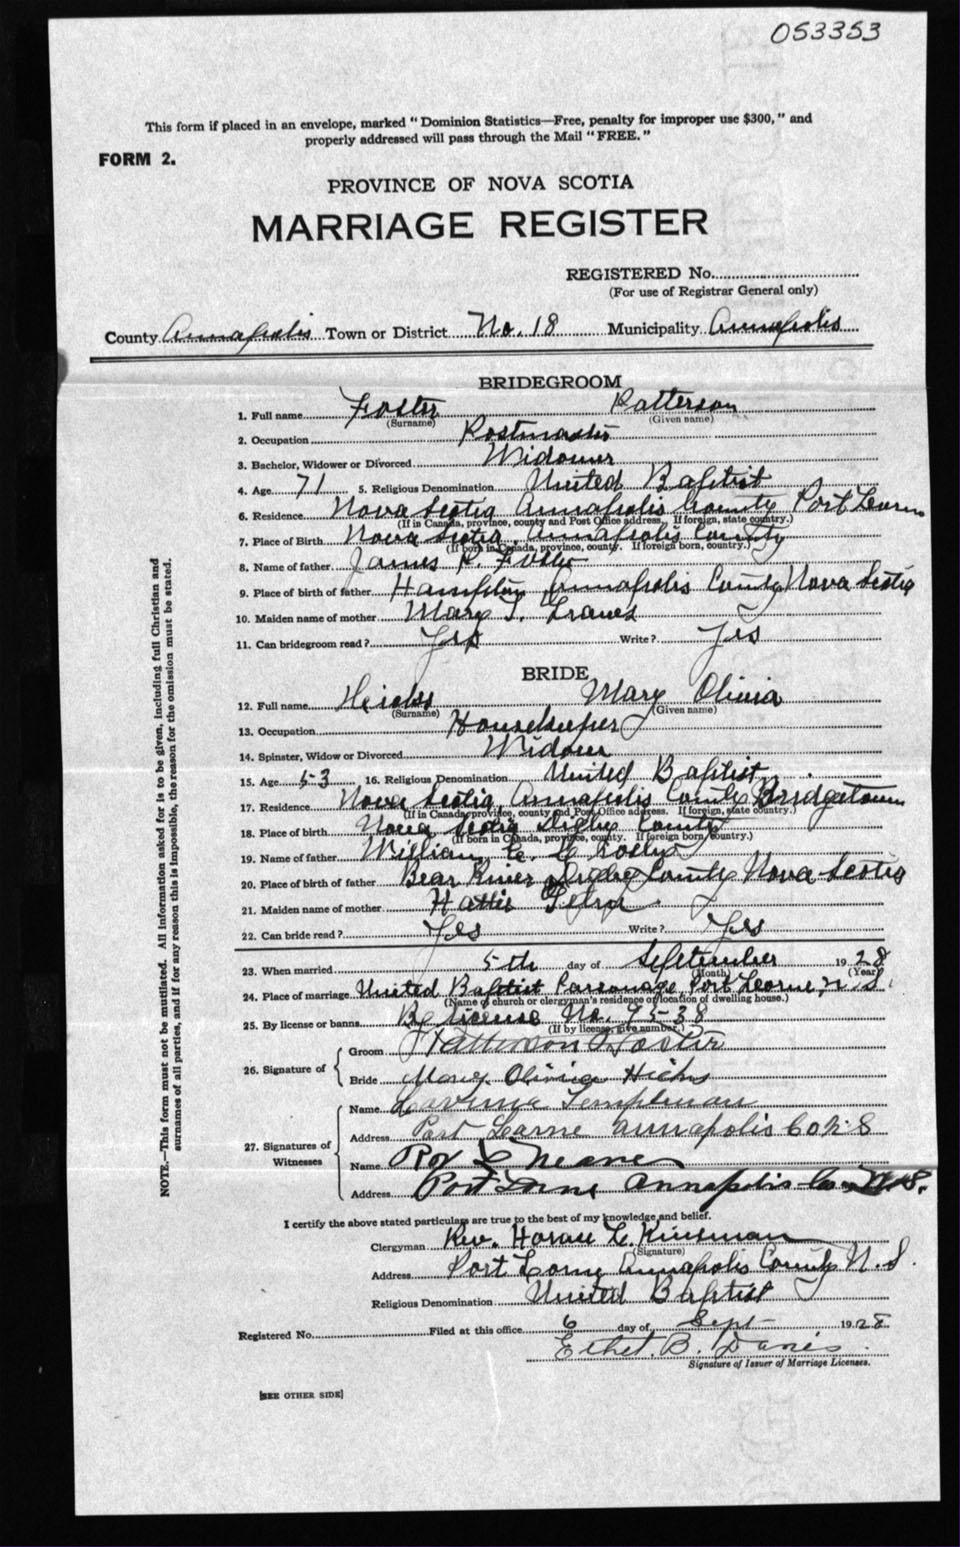 053353
This form if placed in an envelope, marked "Dominion Statistics—Free, penalty for improper use $300," and
properly addressed will pass through the Mail "FREE."
FORM 2.
PROVINCE OF NOVA SCOTIA
MARRIAGE REGISTER
REGISTERED No.
(For use of Registrar General only)
County Annapolis Town or District No. 18 Municipality Annapolis
BRIDEGROOM
1. Full name Foster Patterson
(Surname) (Given name)
2. Occupation Postmaster
3. Bachelor, Widower or Divorced Widower
4. Age 71 5. Religious Denomination United Baptist
6. Residence Nova Scotia Annapolis County Port Lorne
(If in Canada, province, county and Post Office address. If foreign, state country.)
7. Place of Birth Nova Scotia, Annapolis County
(If born in Canada, province, county. If foreign born, country.)
8. Name of father James R. Foster
9. Place of birth of father Hampton Annapolis County Nova Scotia
10. Maiden name of mother Mary J. Graves
11. Can bridegroom read? Yes Write? Yes
BRIDE
12. Full name Hicks Mary Olivia
(Surname) (Given name)
13. Occupation Housekeeper
14. Spinster, Widow or Divorced Widow
15. Age 53 16. Religious Denomination United Baptist
17. Residence Nova Scotia, Annapolis County Bridgetown
(If in Canada, province, county and Post Office address. If foreign, state country.)
18. Place of birth Nova Scotia Digby County
(If born in Canada, province, county. If foreign born, country.)
19. Name of father William
20. Place of birth of father Bear River Digby County Nova Scotia
21. Maiden name of mother Hattie
22. Can bride read? Yes Write? Yes
23. When married 5th day of September 1928
(Month) (Year)
24. Place of marriage United Baptist Parsonage, Port Lorne, N.S.
(Name of church or clergyman's residence or location of dwelling house.)
25. By license or banns By License No. 9538
(If by license, give number.)
26. Signature of
Groom Patterson Foster
Bride Mary Olivia Hicks
27. Signatures of Witnesses
Name Laverna Templeman
Address Port Lorne Annapolis Co N.S
Name Roy L Neaves
Address Port Lorne Annapolis Co. N.S.
I certify the above stated particulars are true to the best of my knowledge and belief.
Clergyman Rev. Horace L. Kinsman
(Signature)
Address Port Lorne Annapolis County N.S.
Religious Denomination United Baptist
Registered No. Filed at this office 6 day of Sept 1928
Ethel. B. Davies
Signature of Issuer of Marriage Licenses.
[SEE OTHER SIDE]
NOTE.—This form must not be mutilated. All information asked for is to be given, including full Christian and
surnames of all parties, and if for any reason this is impossible, the reason for the omission must be stated.